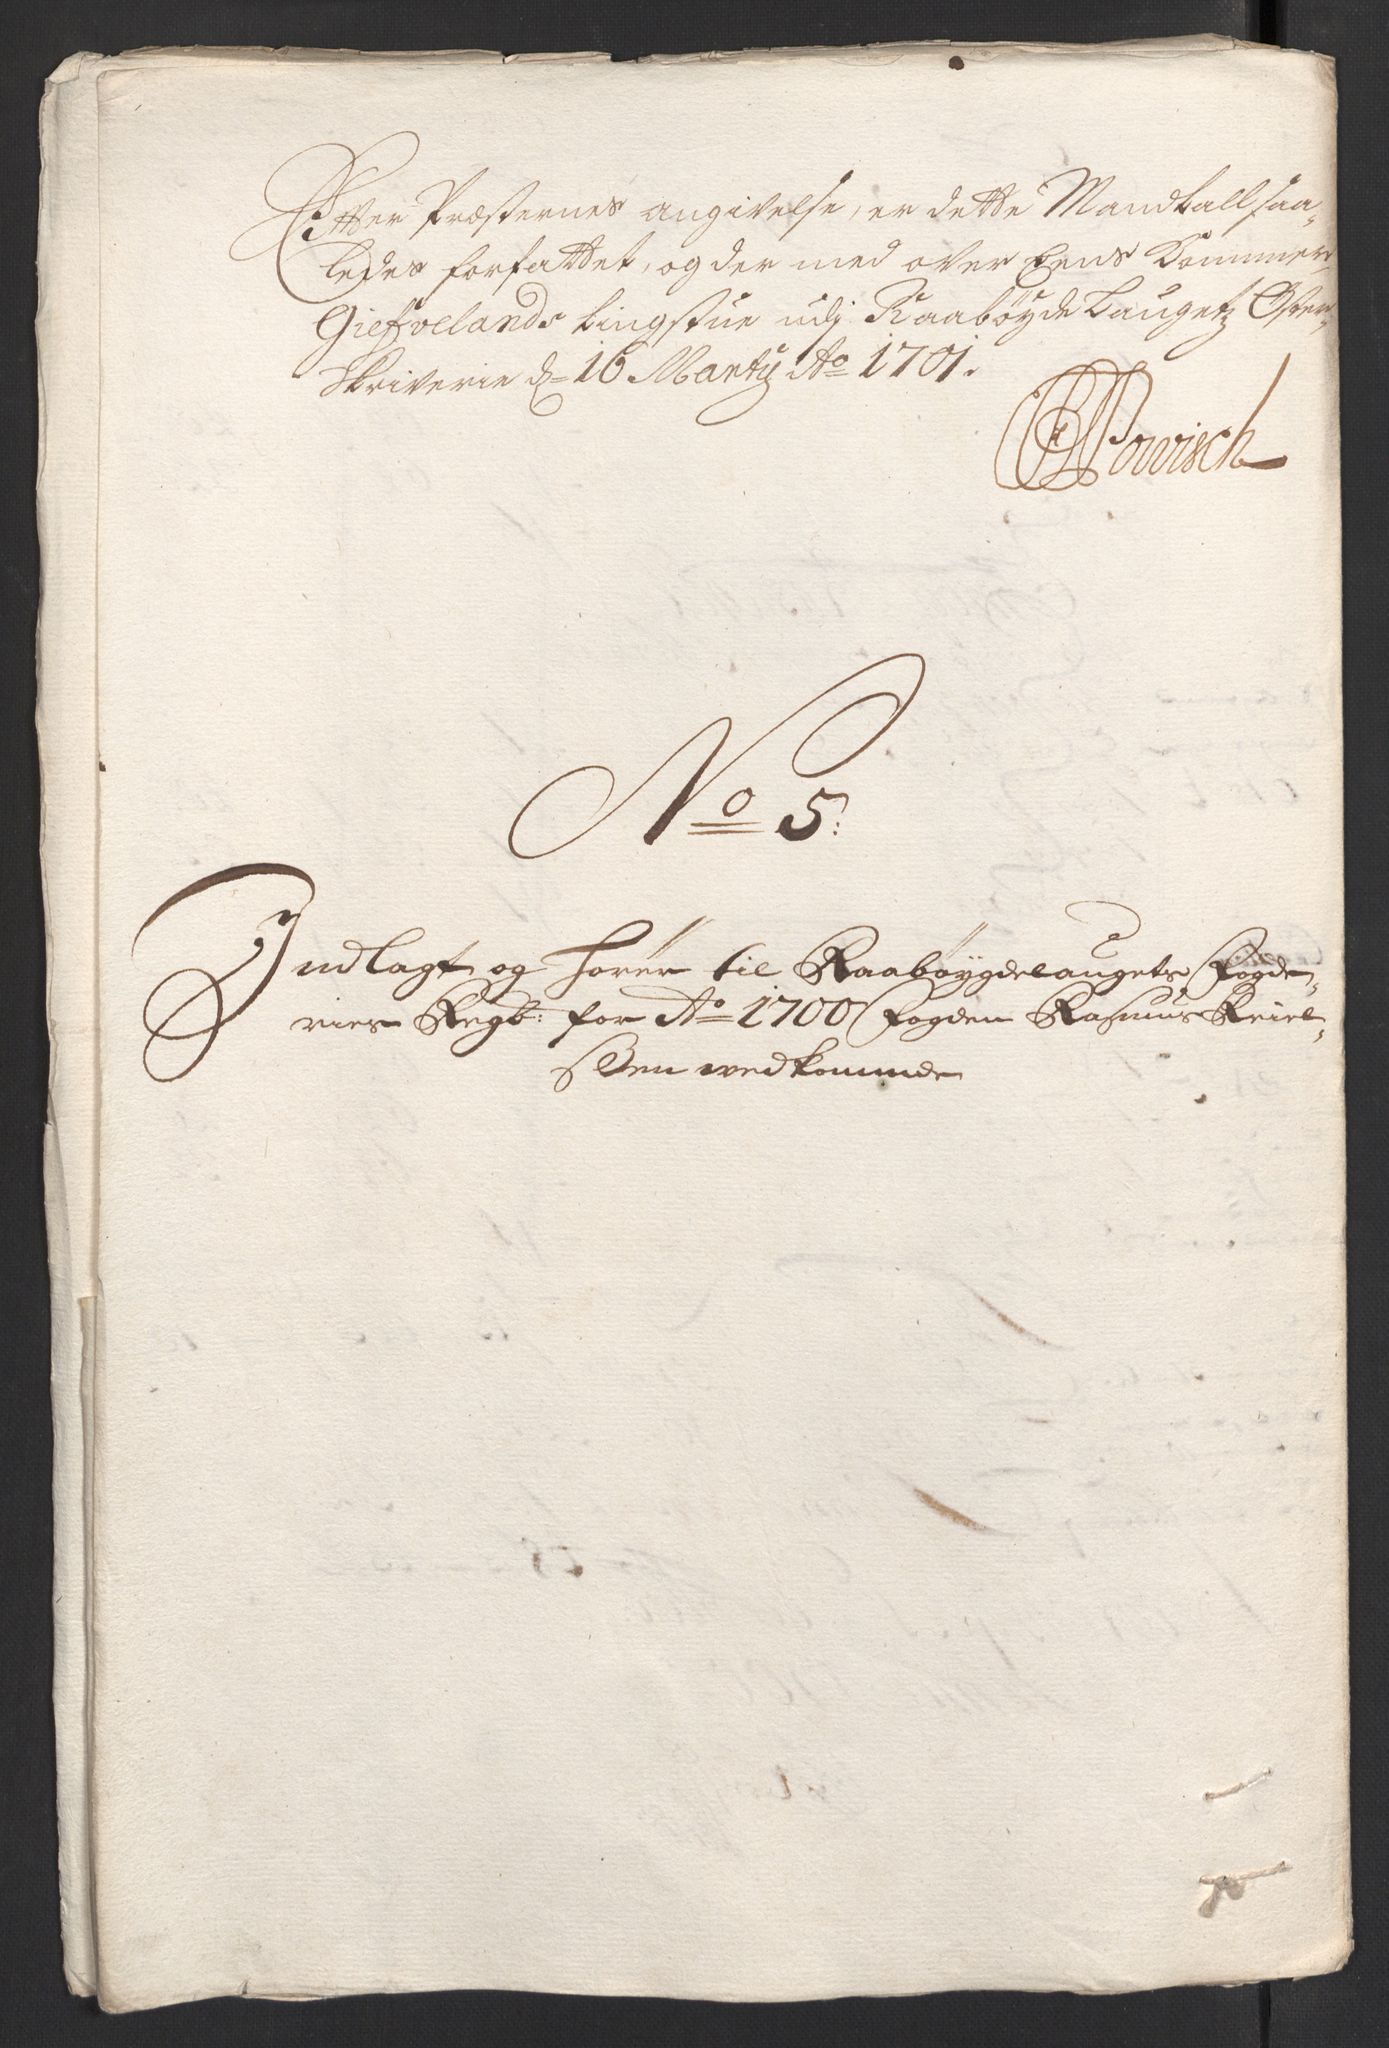 Efter Præsternes angivelse, er dette Mandtall saa-
ledes forfattet, og der med over Eens Kommer
Giefvelands tingstue udj Raabøyde Laugetz Øster-
skriverie d= 16 Marty Ao 1701.
Powisch
No 5:
Indlagt og hører til Raabøygdelaugets Fogde-
ries Regb: for Ao 1700 Fogden Rasmus
ßen vedkommende